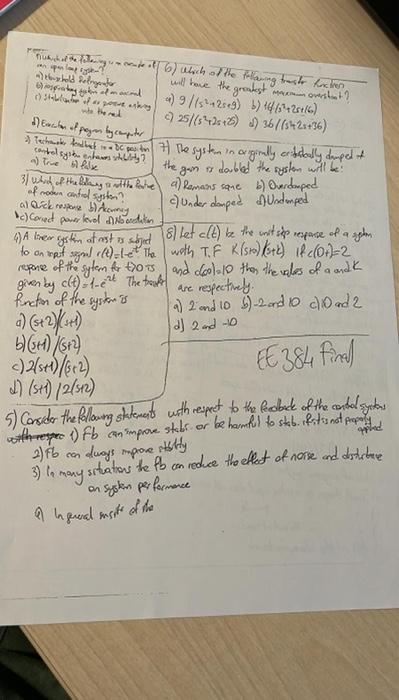 1) Which of the following is an example of
an open loop system?
a) Household Refrigerator
b) respiratory system of an animal
c) Stabilisation of air pressure entering
into the mask
d) Execution of program by computer
2) Techometer feedback in a DC position
control system enhances stability?
a) True b) False
3) Which of the following is not the feature
of modern control system?
a) Quick response b) Accuracy
c) Correct power level d) No oscillation
4) A linear system at rest is subject
to an input signal r(t)=1-e^-t. The
response of the system for t>0 is
given by c(t)=1-e^-2t. The transfer
function of the system is
a) (s+2)/(s+1)
b) (s+1)/(s+2)
c) 2(s+1)/(s+2)
d) (s+1)/2(s+2)
6) Which of the following transfer function
will have the greatest maximum overshoot?
a) 9/(s²+2s+9) b) 16/(s²+2s+16)
c) 25/(s²+2s+25) d) 36/(s²+2s+36)
7) The system in originally critically damped if
the gain is doubled the system will be:
a) Remains same b) Overdamped
c) Under damped d) Undamped
8) Let c(t) be the unit step response of a system
with T.F K(s+a)/(s+2) If c(0+)=2
and c(∞)=10 then the values of a and K
are respectively.
a) 2 and 10 b) -2 and 10 c) 10 and 2
d) 2 and -10
EE 384 Final
5) Consider the following statements with respect to the feedback of the control systems
1) Fb can improve stab. or be harmful to stab. if it is not properly
applied
2) Fb can always improve stability
3) In many situations the fb can reduce the effect of noise and disturbance
on system performance
4) In general the